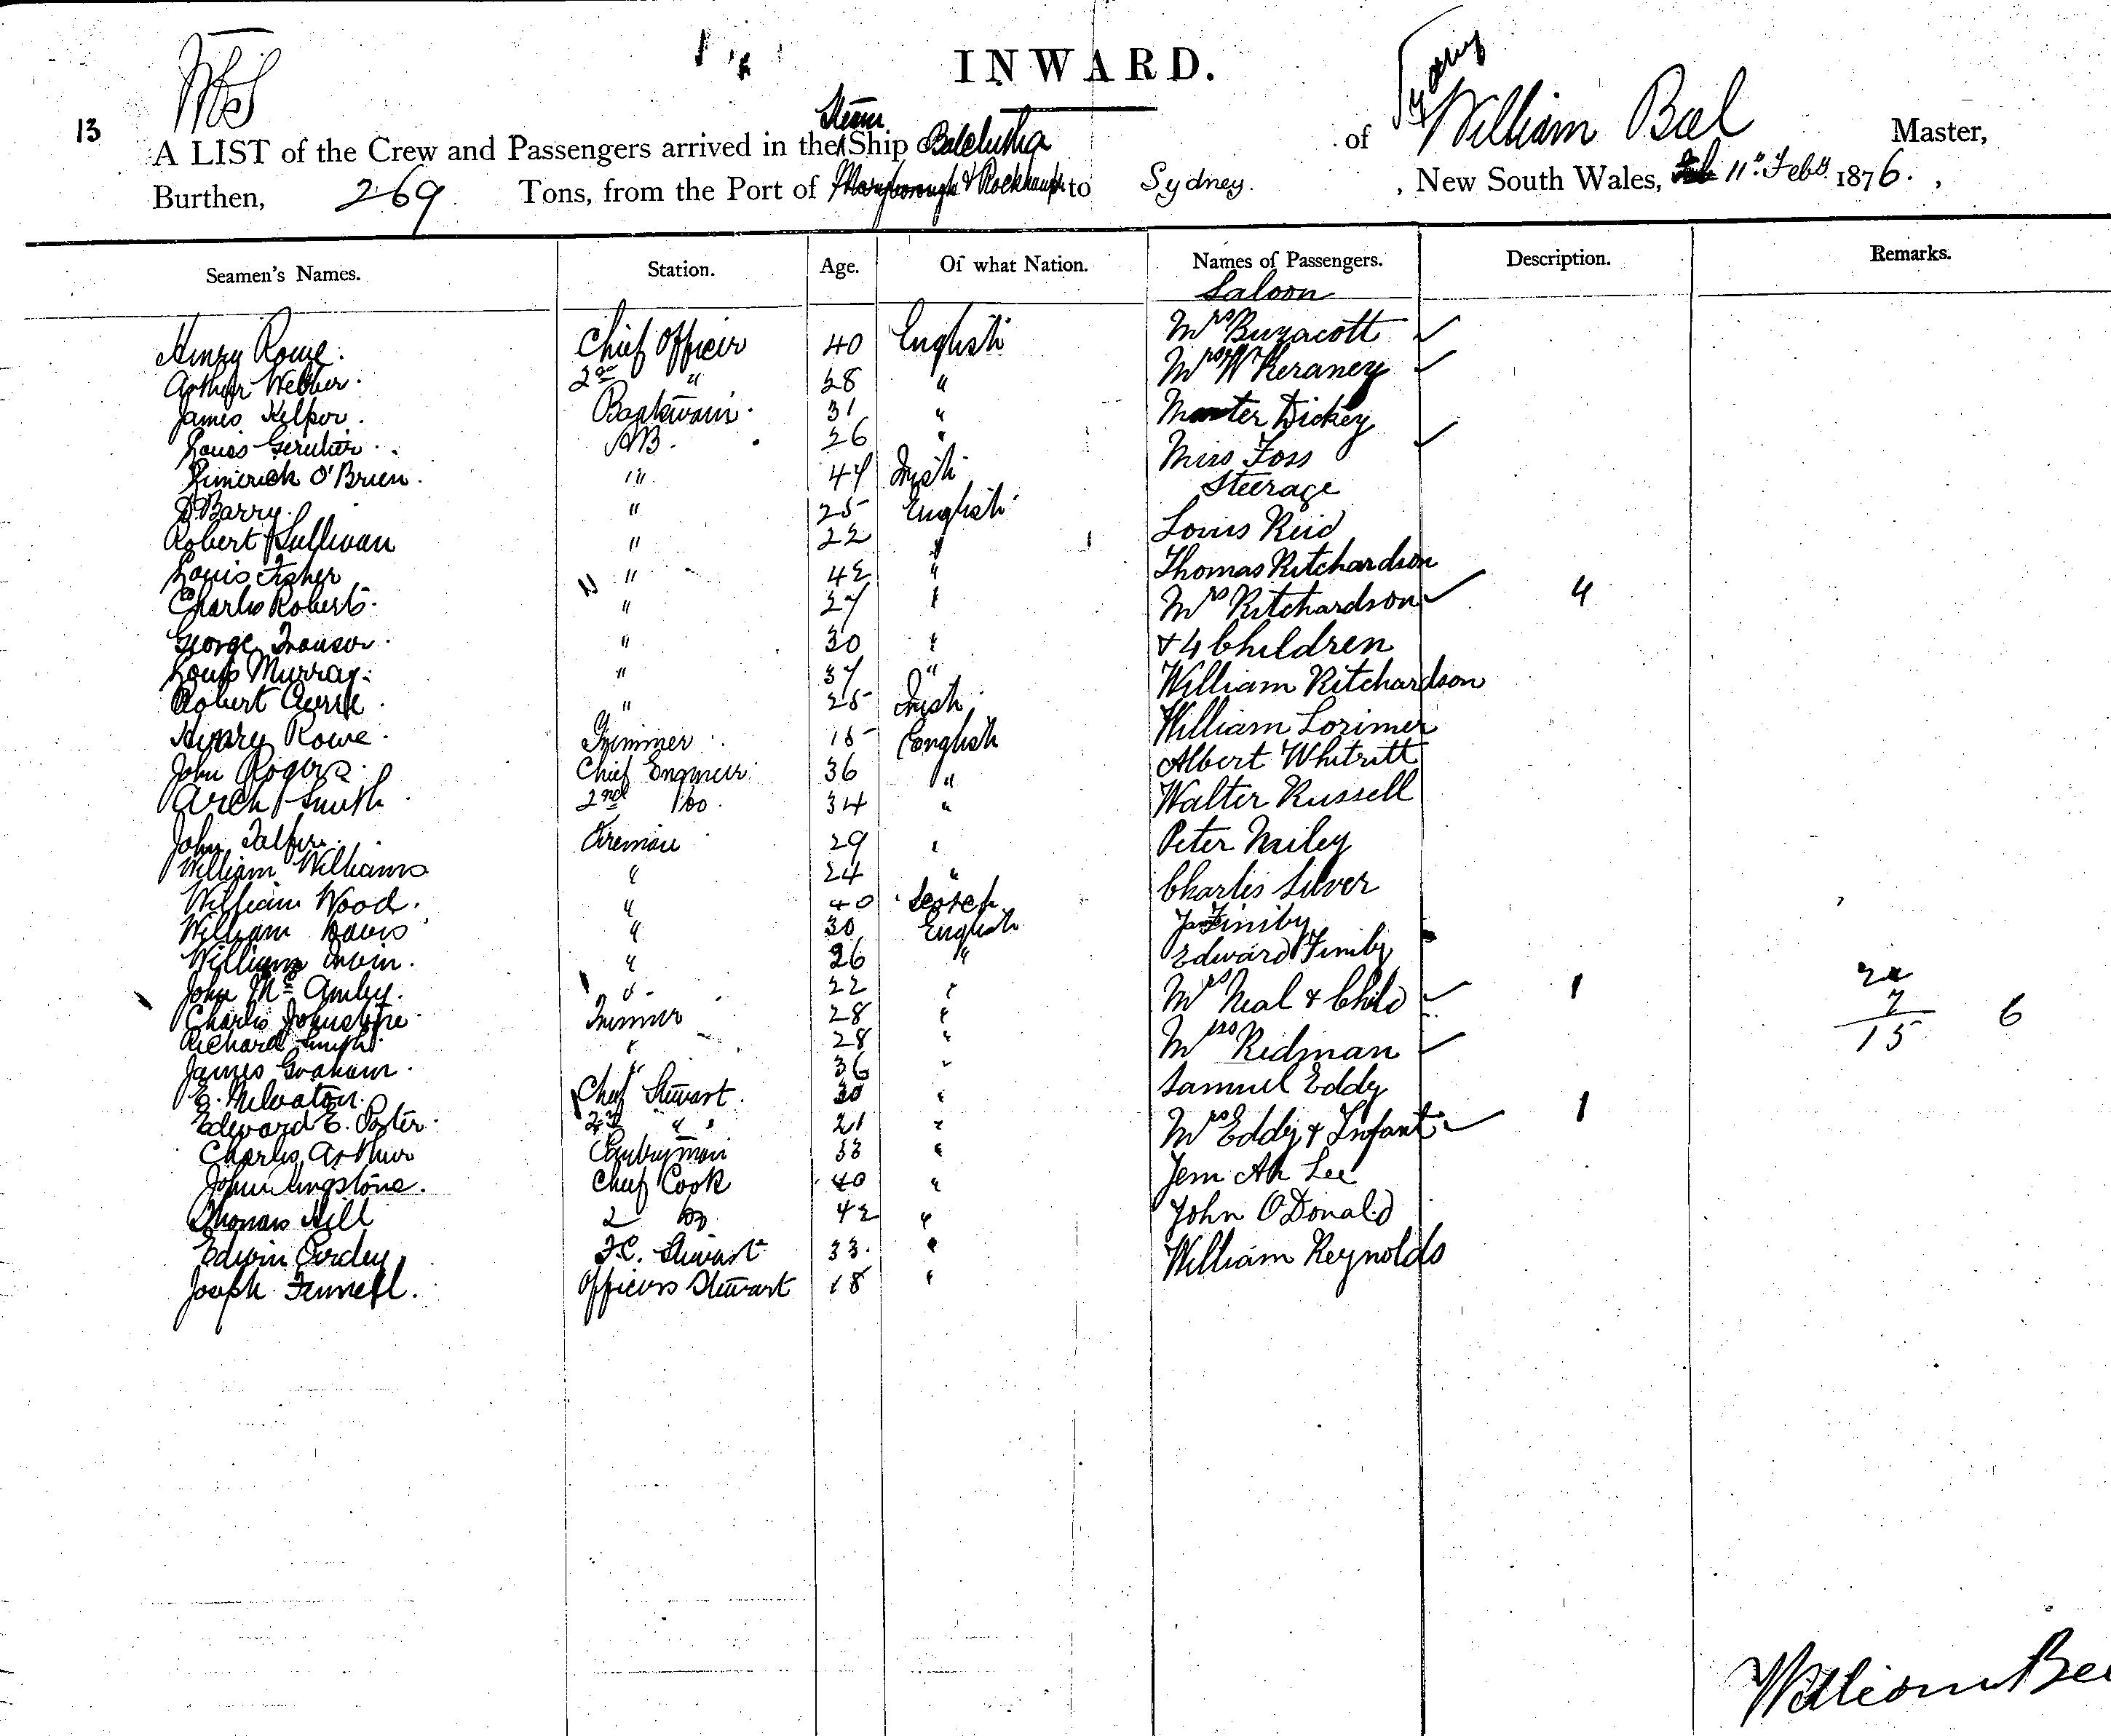 INWARD.
13
A LIST of the Crew and Passengers arrived in the Steam Ship Balclutha of Sydney William Bel Master,
Burthen, 269 Tons, from the Port of Maryborough & Rockhampt to Sydney. , New South Wales, 11th Feby. 1876. ,
Seamen's Names. Station. Age. Of what Nation. Names of Passengers. Description. Remarks.
Saloon
Henry Rowe. Chief Officer 40 English Mrs Buzacott
Arthur Webber. 2nd " 28 " Mrs W Keraney
James Kelper. Boatswain. 31 " Master Dickey
Louis AB. 26 " Miss Foss
Limerick O'Brien. " 44 Irish Steerage
D. Barry. " 25 English
Robert Sullivan " 22 " Louis Reid
Louis Fisher " 42 " Thomas Ritchardson
Charles Roberts. " 27 " Mrs Ritchardson 4
George " 30 " & 4 Children
Louis Murray. " 37 " William Ritchardson
Robert " 25 Irish William Lorimer
Henry Rowe. Trimmer 15 English Albert Whitritt
John Rogers. Chief Engineer 36 "
Arch Smith 2nd Do. 34 " Walter Russell
John Fireman 29 " Peter Nailey
William Williams " 24 " Charles Silver
William Wood. " 40 Scotch Jas Finiby
William Davis " 30 English Edward Finiby
William Irvin. " 26 "
John Mc " 22 " Mrs Neal & Child 1
Charles Johnstone Trimmer 28 " 7
Richard Smith. " 28 " Mrs Ridman 15 6
James Graham. " 36 " Samuel Eddy
E. Chief Stewart. 30 "
Edward E. Porter. 2nd " " 21 " Mrs Eddy & Infant 1
Charles Arthur Pantryman 33 " Jem Ah Lee
John Kingstone. Chief Cook 40 "
Thomas Hill 2 Do 42 " John O'Donald
Edwin F.C. Stewart 33. " William Reynolds
Joseph Fennell. Officers Stewart 18 "
William Bee